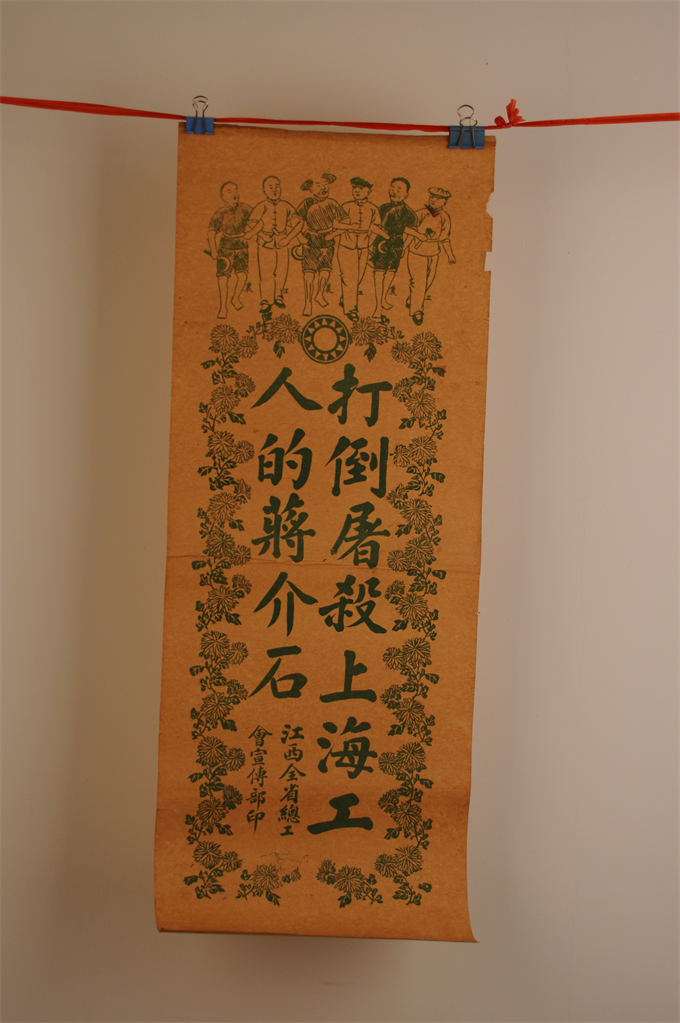 打倒屠殺上海工
人的蔣介石
江西全省總工
會宣傳部印